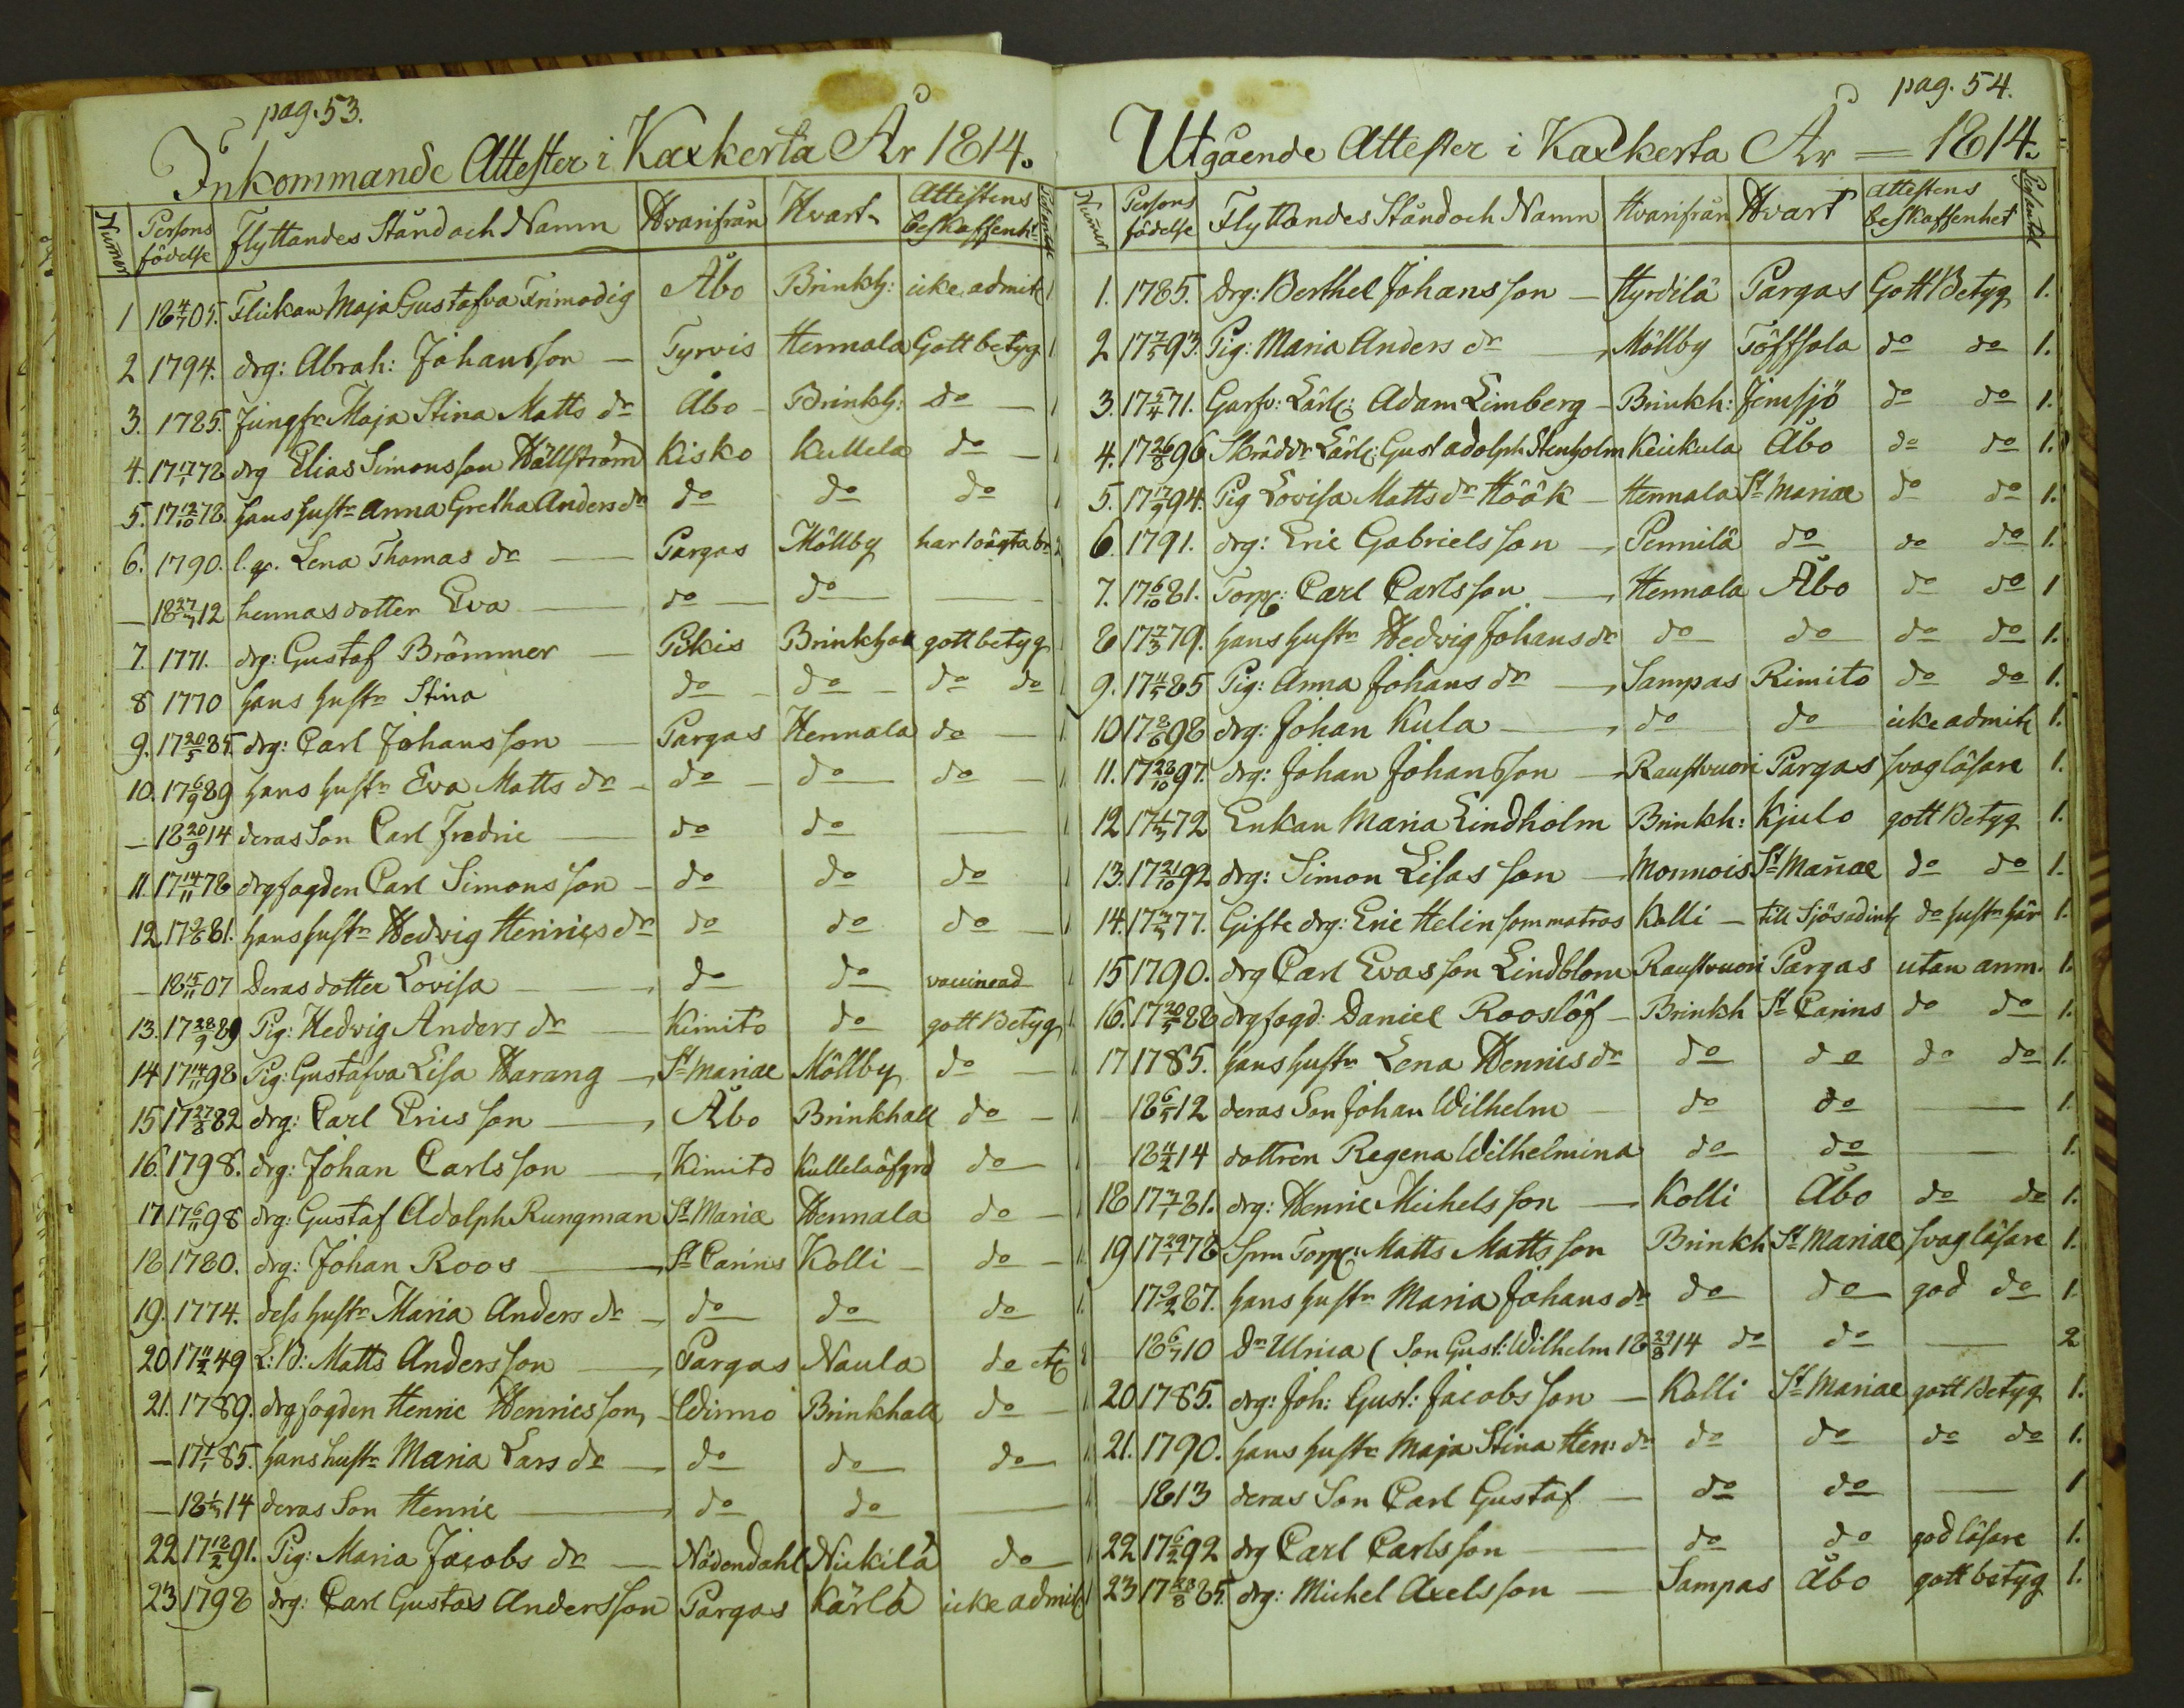 pag. 53.
Inkommande Attester i Kaxkerta År 1814.
Numer Persons födelse Flyttandes Stånd och Namn Hvarifrån Hvart Attestens beskaffenht:
1 18 4/7 05. Flickan Maja Gustafva Frimodig Åbo Brinkh: icke admitt 1
2 1794. drg: Abrah: Johansson — Tyrvis Hennala Gott betyg 1
3. 1785. Jungfr Maja Stina Matts dr Åbo Brinkh: do — 1
4. 17 17/1 78 drg Elias Simonsson Hällström Kisko Kullela do — 1
5. 17 12/10 78. hans hustr Anna Gretha Anders dr do do do 1
6. 1790. l. q. Lena Thomas dr — Pargas Möllby har 1 oägta br 2
— 18 27/7 12 hennas dotter Eva — do do —
7. 1771. drg: Gustaf Brömmer — Pikis Brinkhall gott betyg 1
8 1770 hans hustr Stina do do do do 1
9. 17 20/5 85. drg: Carl Johansson — Pargas Hennala do — 1
10. 17 6/9 89 hans hustr Eva Matts dr — do do do — 1
— 18 20/9 14 deras Son Carl Fredric — do do — 1
11. 17 14/11 78 drgfogden Carl Simonsson — do do do 1
12. 17 3/8 81. hans hustr Hedvig Henrics dr do do do — 1
— 18 15/11 07 Deras dotter Lovisa — do do vaccinead 1
13. 17 28/9 89 Pig: Hedvig Anders dr — Kimito do gott Betyg 1
14 17 14/11 98 Pig: Gustafva Lisa Harang — St Mariae Möllby do — 1
15 17 27/8 82 drg: Carl Ericsson — Åbo Brinkhall do — 1.
16. 1798. drg: Johan Carlsson — Kimito Kullela öfgrd do — 1
17 17 6/11 98 drg: Gustaf Adolph Rungman St Maria Hennala do — 1
18 1780. drg: Johan Roos — St Carins Kolli — do — 1.
19. 1774. dess hustr Maria Anders dr — do do do 1.
20 17 11/2 49 L: B: Matts Andersson — Pargas Naula do etc 1
21. 1789. drgfogden Henric Henricsson, — Virmo Brinkhall do — 1
— 17 1/1 85. hans hustr Maria Lars dr — do do do 1
— 18 1/7 14 deras Son Henric — do do — 1
22 17 12/2 91. Pig: Maria Jacobs dr — Nådendahl Nickilä do — 1
23 1798 drg: Carl Gustav Andersson Pargas Kärlä icke admitt 1
pag. 54.
Utgående Attester i Kaxkerta År = 1814.
Numer Persons födelse Flyttandes Stånd och Namn Hvarifrån Hvart attestens beskaffenhet
1. 1785. drg: Berthel Johansson — Hyrdilä Pargas Gott Betyg 1.
2 17 7/5 93. Pig: Maria Anders dr — Möllby Töffsala do do 1.
3. 17 5/4 71. Garfv: Lärl: Adam Limberg — Brinkh: Jemsjö do do 1.
4. 17 26/8 96 Skräddr Lärl: Gust adolph Stenholm Keickula Åbo do do 1.
5. 17 17/9 94. Pig Lovisa Matts dr Höök — Hennala St Mariae do do 1.
6. 1791. drg: Eric Gabrielsson — Pennilä do do do 1.
7. 17 6/10 81. Torp: Carl Carlsson — Hennala Åbo do do 1
8 17 7/3 79. hans hustr Hedvig Johans dr do do do do 1.
9. 17 4/5 85 Pig: Anna Johans dr — Sampas Rimito do do 1.
10 17 8/6 98 drg: Johan Kula — do do icke admitt 1.
11. 17 28/10 97. drg: Johan Johansson — Raustvuori Pargas svag läsare 1.
12 17 4/3 72 Enkan Maria Lindholm Brinkh: Kjulo gott Betyg 1.
13. 17 21/10 92 drg: Simon Lisasson — Monnois St Mariae do do 1.
14. 17 3/3 77. Gifte drg: Eric Helin som matros Kolli — till Sjös do hustr här 1.
15 1790. drg Carl Evasson Lindblom Raustvuori Pargas utan anm. 1.
16. 17 20/5 88 drgfogd: Daniel Rooslöf — Brinkh St Carins do do 1.
17 1785. hans hustr Lena Henrics dr do do do do 1.
18 6/5 12 deras Son Johan Wilhelm — do do — 1.
18 4/2 14 dottren Regena Wilhelmina do do — 1.
18 17 3/1 81. drg: Henric Michelsson — Kolli Åbo do do 1.
19 17 29/1 78 Spm Torp: Matts Mattsson Brinkh St Mariae svag läsare 1.
17 3/2 87. hans hustr Maria Johans dr do do god do 1.
18 6/7 10 Dr Ulrica (Son Gust: Wilhelm 18 29/8 14 do do — 2
20 1785. drg: Joh: Gust: Jacobsson — Kolli St Mariae gott Betyg 1.
21. 1790. hans hustr Maja Stina Hen: dr do do do do 1.
1813 deras Son Carl Gustaf — do do — 1
22 17 6/2 92 drg Carl Carlsson — do do god läsare 1.
23 17 28/8 85. drg: Michel Axelsson — Sampas Åbo gott betyg 1.